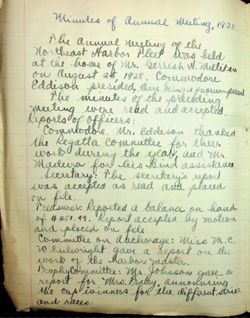 Minutes of Annual Meeting, 1928
The Annual Meeting of the
Northeast Harbor Fleet was held
at the home of Mr. Gerrish H. Milliken
on August 28, 1928. Commodore
Eddeson presided, there being a quorum present.
The minutes of the preceding
meeting were read and accepted.
Reports of Officers:
Commodore. Mr. Eddeson thanked
the Regatta Committee for their
work during the year, and Mr.
Madeira for his kind assistance.
Secretary: The Secretary's report
was accepted as read and placed
on file.
Treasurer: Reported a balance on hand
of Report accepted by motion
and placed on file.
Committee on Anchorage: Miss M. C.
Wheelwright gave a report on the
work of the harbor master.
Trophy Committee: Mr. Johnson gave a
report for Mrs. announcing
the cup winners for the different series
and races.